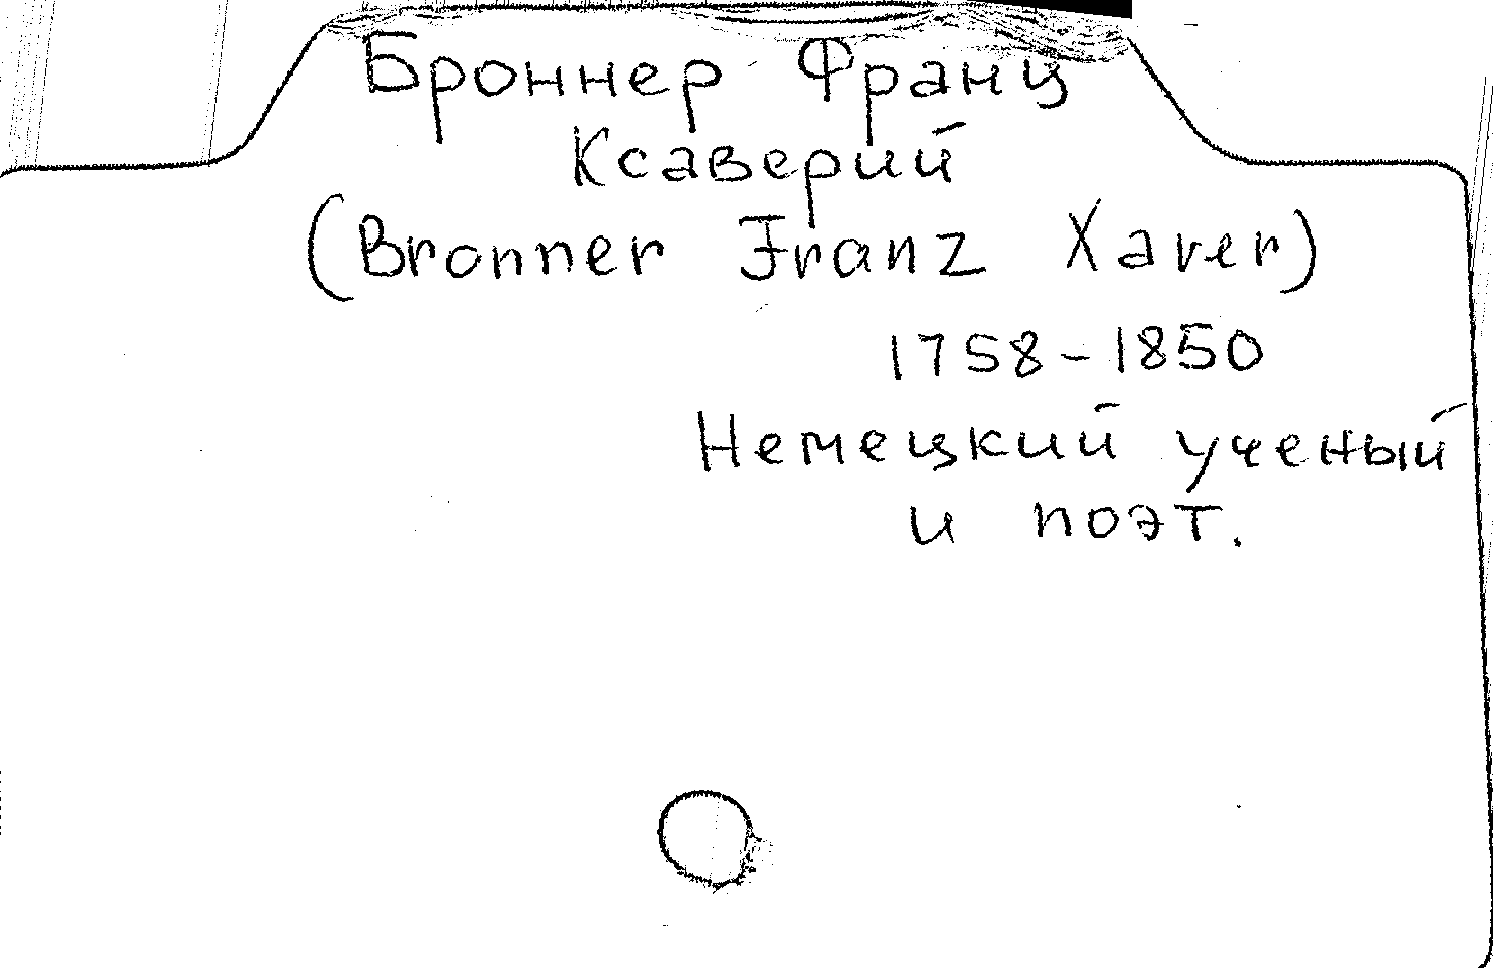 Броннер Франц
Ксаверий
(Bronner Franz Xaver)
1758-1850
Немецкий ученый
и поэт.